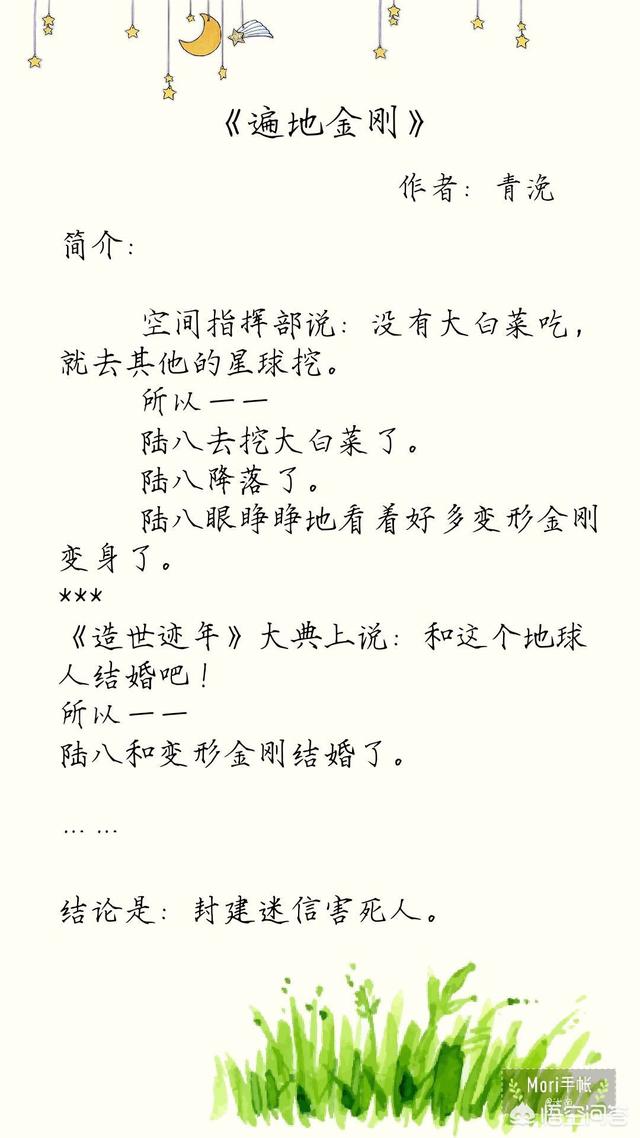 《遍地金刚》
作者：青浼
简介：
空间指挥部说：没有大白菜吃，
就去其他的星球挖。
所以——
陆八去挖大白菜了。
陆八降落了。
陆八眼睁睁地看着好多变形金刚
变身了。
***
《造世迹年》大典上说：和这个地球
人结婚吧！
所以——
陆八和变形金刚结婚了。
……
结论是：封建迷信害死人。
Mori手帐
悟空问答